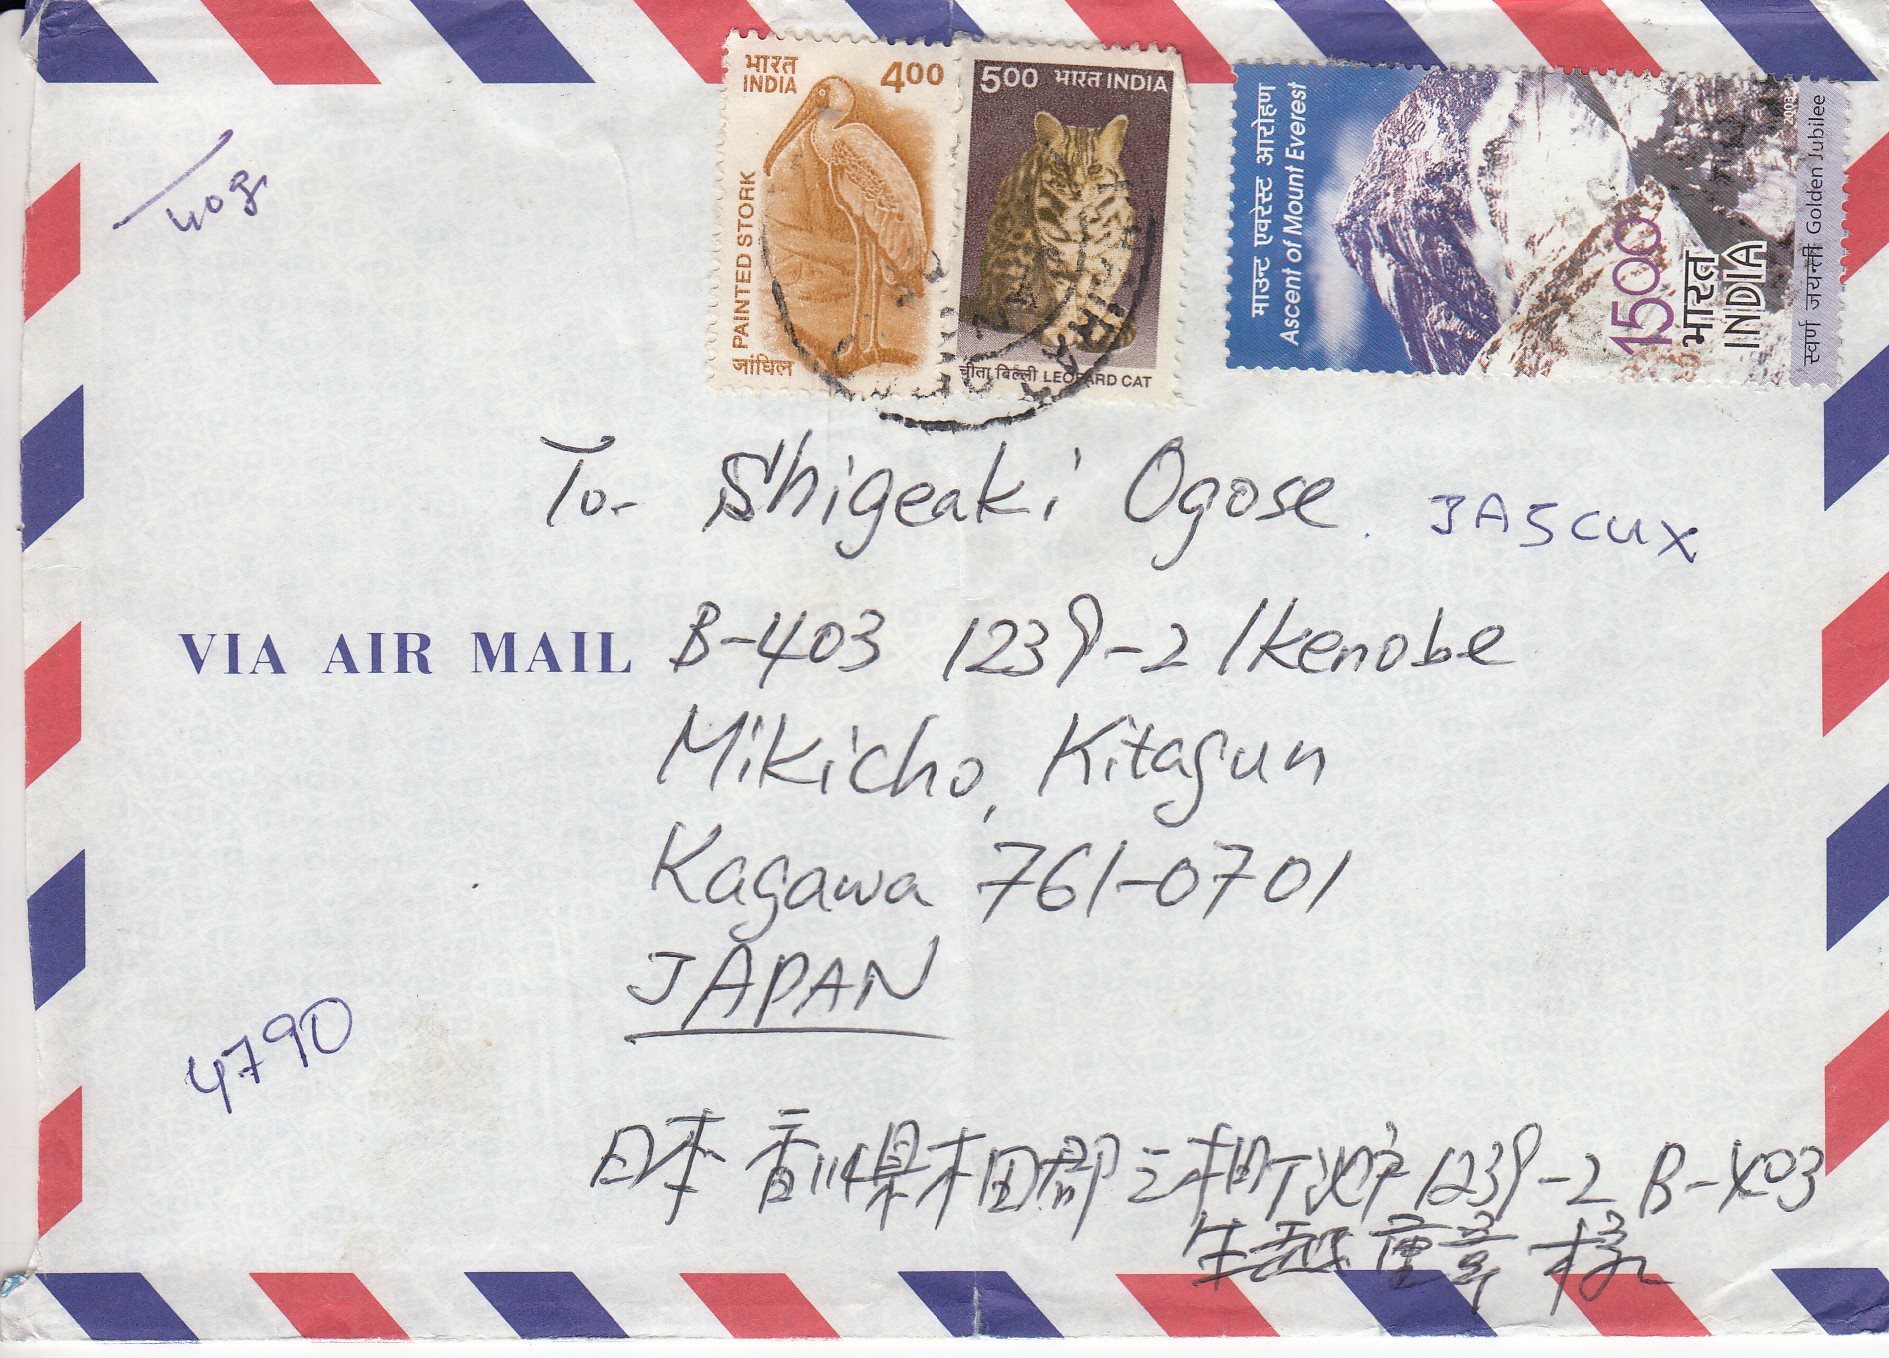 भारत
INDIA
400
PAINTED STORK
जांघिल
500 भारत INDIA
चीता बिल्ली LEOPARD CAT
माउन्ट एवरेस्ट आरोहण
Ascent of Mount Everest
1500
भारत
INDIA
2003
स्वर्ण जयन्ती Golden Jubilee
40g
To- Shigeaki Ogose. JASCUX
VIA AIR MAIL
B-403 1239-2 Ikenobe
Mikicho, Kitagun
Kagawa 761-0701
JAPAN
4790
日本 香川県木田郡三木町池戸1239-2 B-403
生越重章 様